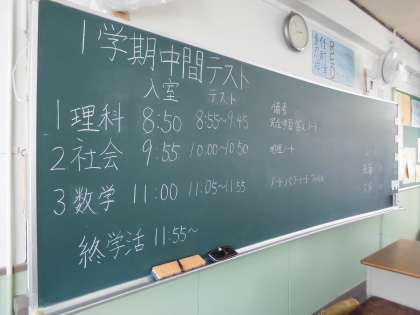 1学期中間テスト
入室 テスト 備考
1 理科 8:50 8:55~9:45
2 社会 9:55 10:00~10:50 地理ノート
3 数学 11:00 11:05~11:55
終学活 11:55~